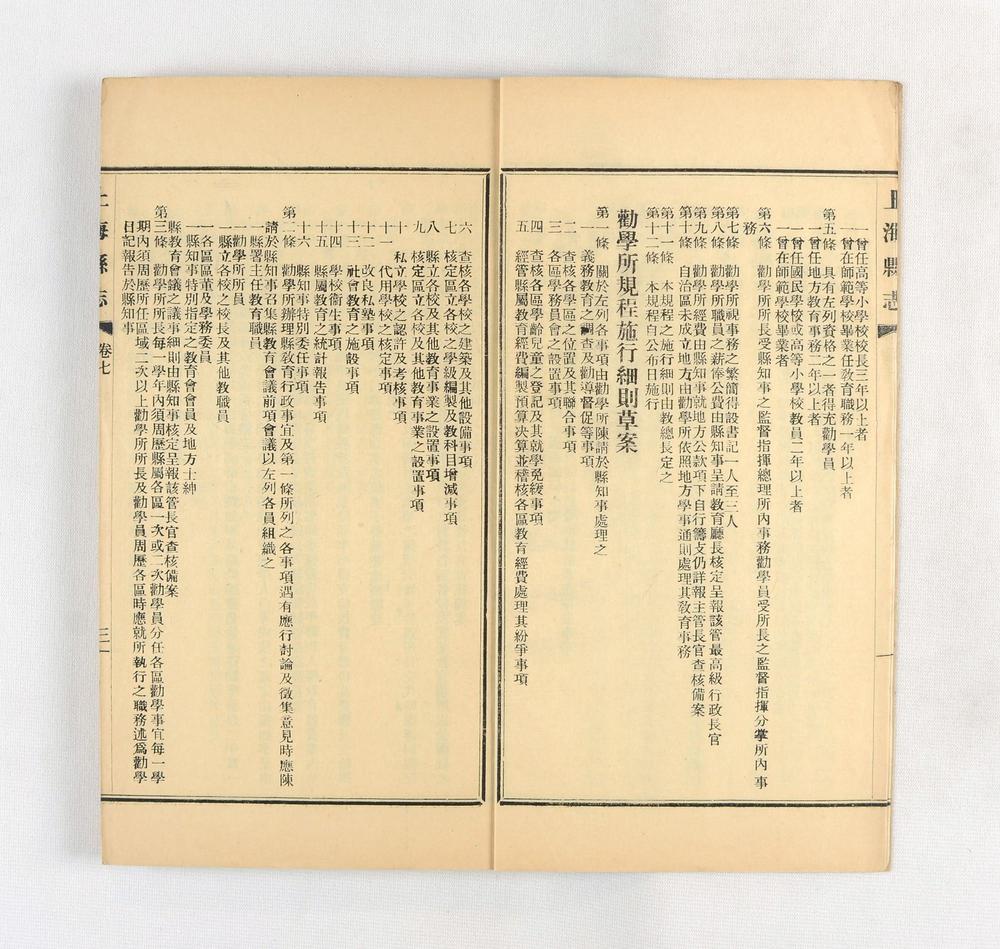 上海縣志
一曾任高等小學校校長三年以上者
一曾在師範學校畢業任敎育職務一年以上者
第五條　具有左列資格之一者得充勸學員
一曾任地方教育事務二年以上者
一曾任國民學校或高等小學校教員二年以上者
一曾在師範學校畢業者
第六條　勸學所所長受縣知事之監督指揮總理所內事務勸學員受所長之監督指揮分掌所內事
務
第七條　勸學所視事務之繁簡得設書記一人至三人
第八條　勸學所職員之薪俸公費由縣知事呈請教育廳長核定呈報該管最高級行政長官
第九條　勸學所經費由縣知事就地方公款項下自行籌支仍詳報主管長官查核備案
第十條　自治區未成立地方由勸學所依照地方學事通則處理其敎育事務
第十一條　本規程之施行細則由教總長定之
第十二條　本規程自公布日施行
勸學所規程施行細則草案
第一條　關於左列各事項由勸學所陳請於縣知事處理之
一　義務教育之調查及勸導督促等事項
二　查核各學區之位置及其聯合事項
三　各區學務員會之設置事項
四　查核各區學齡兒童之登記及其就學免緩事項
五　經管縣屬教育經費編製預算決算並稽核各區敎育經費處理其紛爭事項
六　查核各學校之建築及其他設備事項
七　核定區立各校之學級編製及教科目增減事項
八　縣立各校及其他教育事業之設置事項
九　核定區立各校及其他教育事業之設置事項
十　私立學校之認許及考核事項
十一　代用學校之核定事項
十二　改良私塾事項
十三　社會教育之施設事項
十四　學校衞生事項
十五　縣屬教育之統計報告事項
十六　縣知事特別委任事項
第二條　勸學所辦理縣敎育行政事宜及第一條所列之各事項遇有應行討論及徵集意見時應陳
請於縣知事召集縣敎育會議前項會議以左列各員組織之
一縣署主任教育職員
一勸學所所員
一縣立各校之校長及其他敎職員
一各區區董及學務委員
一縣知事特別指定之教育會會員及地方士紳
縣教育會議之議事細則由縣知事核定呈報該管長官查核備案
第三條　勸學所所長每一學年內須周歷縣屬各區一次或二次勸學員分任各區勸學事宜每一學
期內須周歷所任區域二次以上勸學所所長及勸學員周歷各區時應就所執行之職務述爲勸學
日記報告於縣知事
上海縣志
卷七
三一